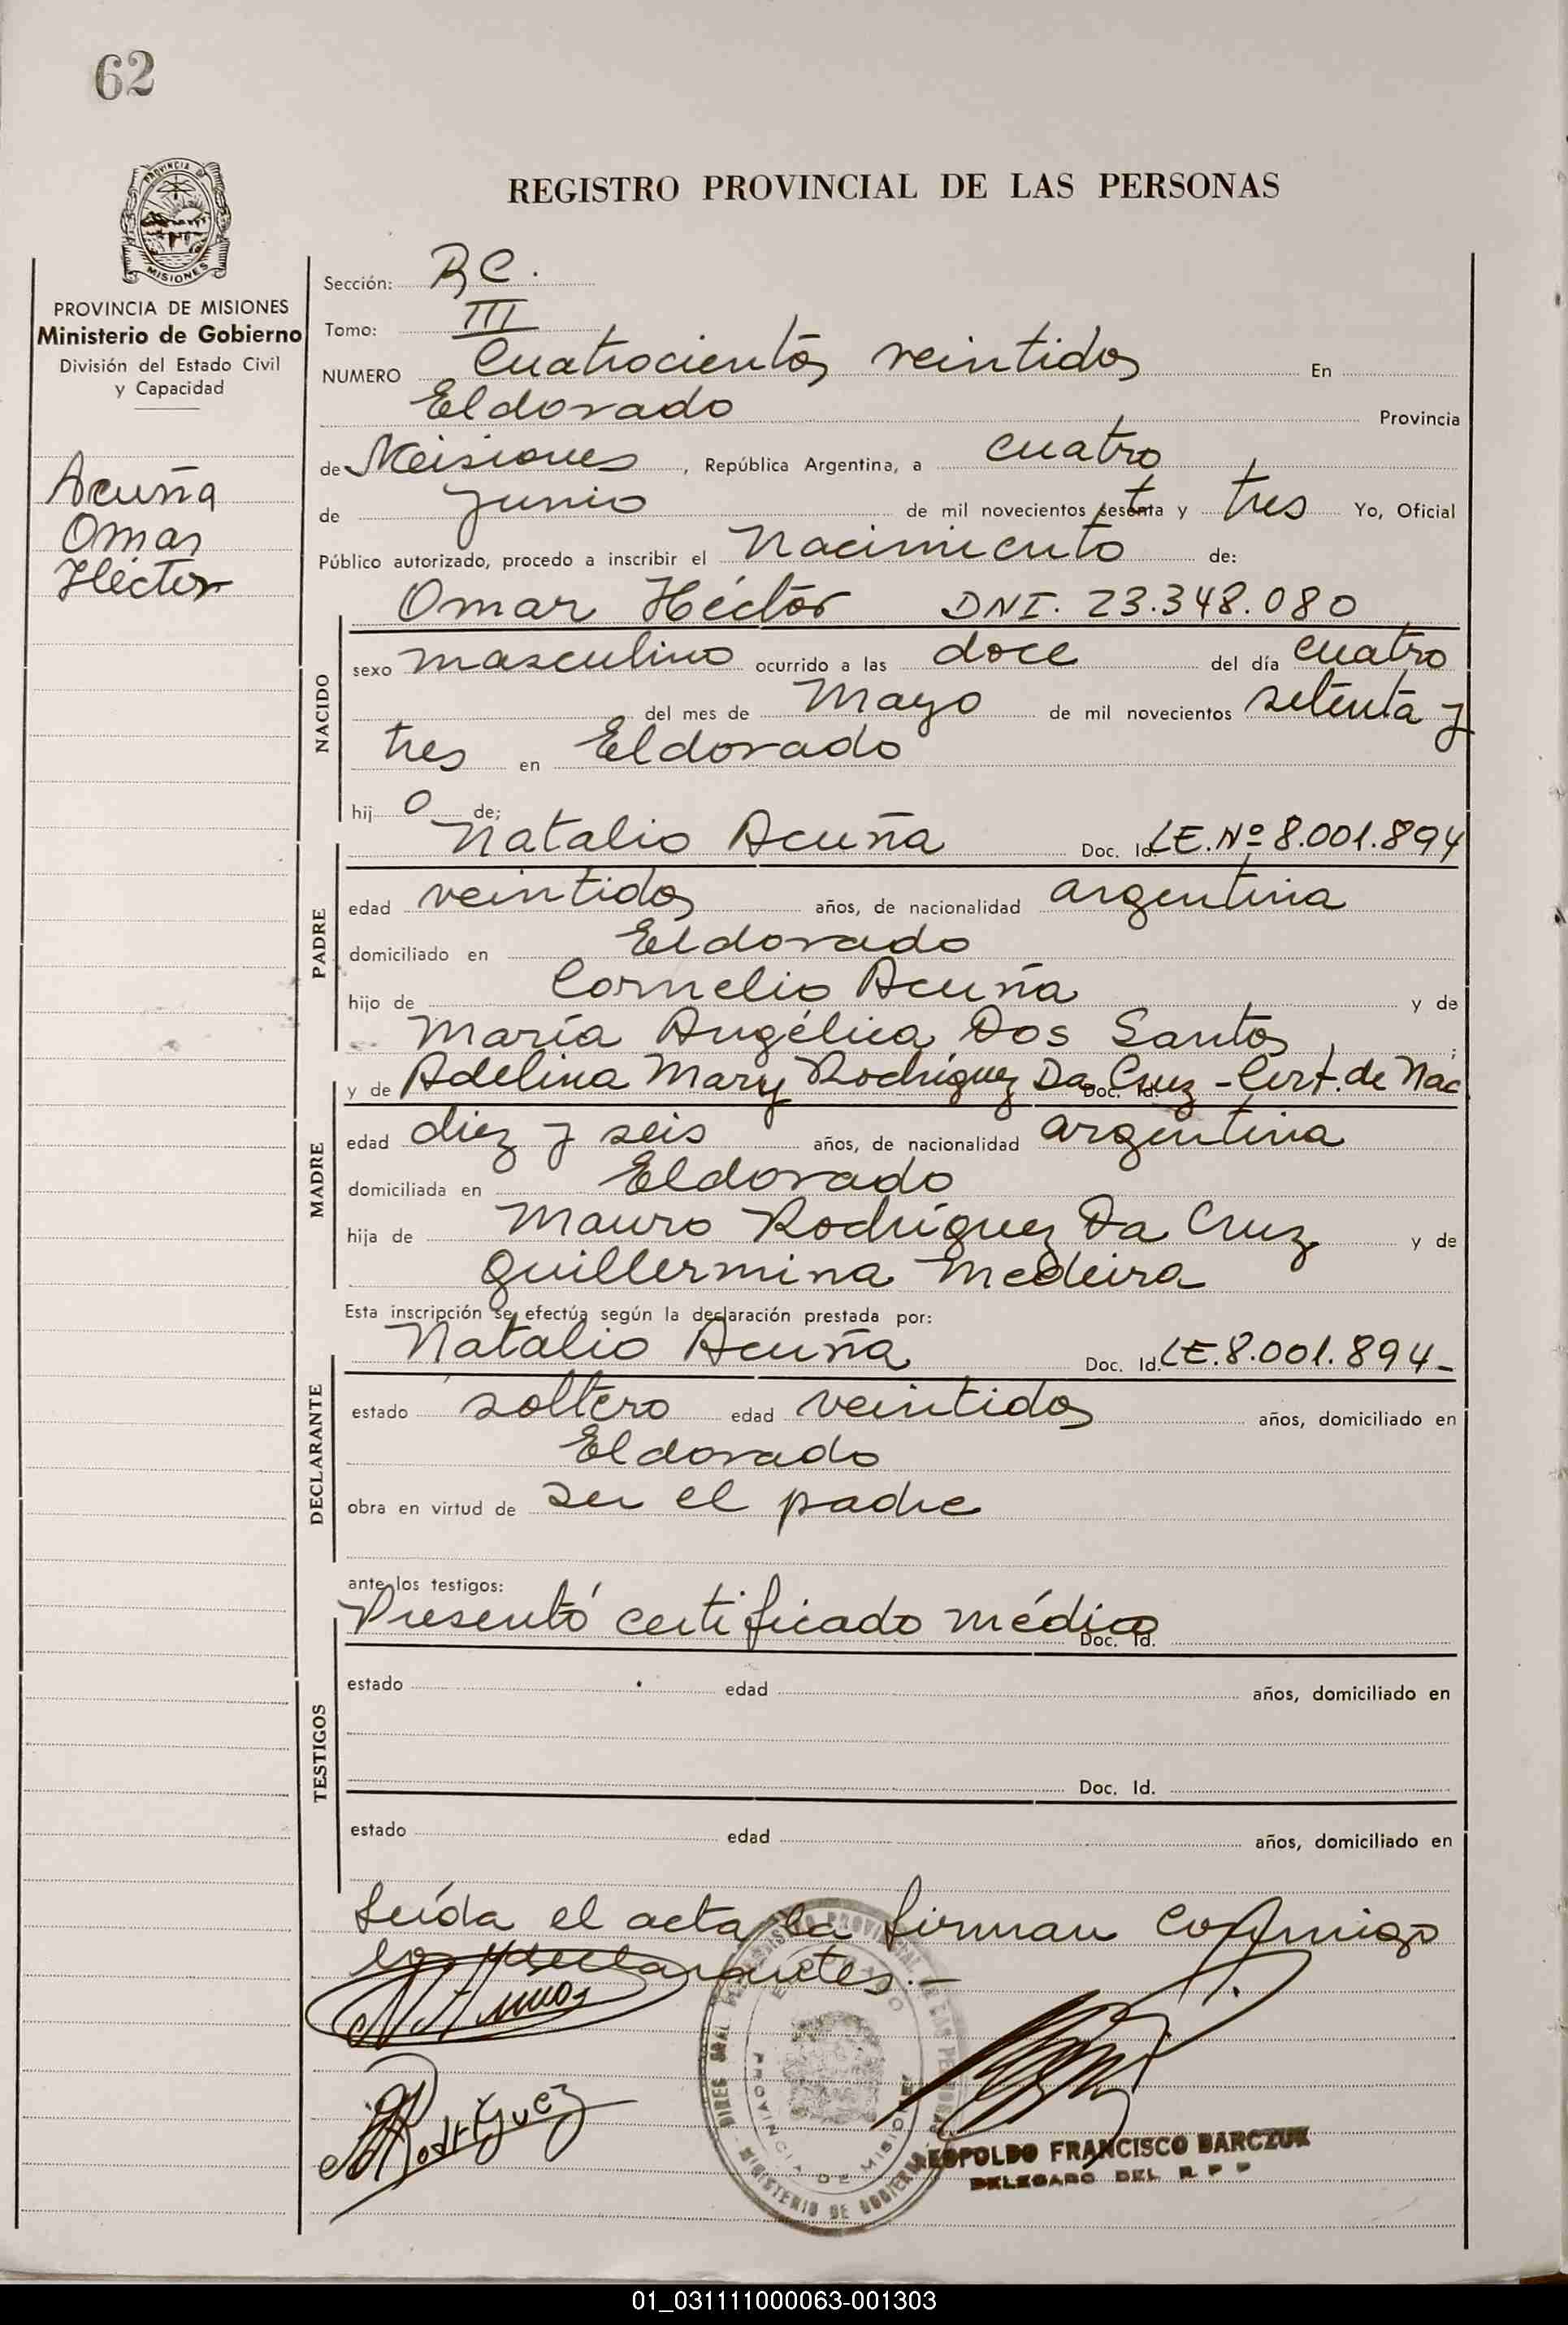 62
PROVINCIA DE
MISIONES
PROVINCIA DE MISIONES
Ministerio de Gobierno
División del Estado Civil
y Capacidad
Acuña
Omar
Héctor
REGISTRO PROVINCIAL DE LAS PERSONAS
Sección: RC.
Tomo: III
NUMERO Cuatrocientos veintidos En
Eldorado Provincia
de Misiones, República Argentina, a cuatro
de Junio de mil novecientos setenta y tres Yo, Oficial
Público autorizado, procedo a inscribir el Nacimiento de:
Omar Héctor DNI. 23.348.080
NACIDO
sexo masculino ocurrido a las doce del día cuatro
del mes de Mayo de mil novecientos setenta y
tres en Eldorado
hij o de;
Natalio Acuña Doc. Id. LE.Nº 8.001.894
PADRE
edad veintidos años, de nacionalidad argentina
domiciliado en Eldorado
hijo de Cornelio Acuña y de
María Angélica Dos Santos ;
y de Adelina Mary Rodríguez Da Cruz - Doc. Id. Cert. de Nac
MADRE
edad diez y seis años, de nacionalidad argentina
domiciliada en Eldorado
hija de Mauro Rodríguez Da Cruz y de
Guillermina Medeira
Esta inscripción se efectúa según la declaración prestada por:
Natalio Acuña Doc. Id. LE.8.001.894-
DECLARANTE
estado soltero edad veintidos años, domiciliado en
Eldorado
obra en virtud de ser el padre
ante los testigos:
Presentó certificado médico Doc. Id.
TESTIGOS
estado edad años, domiciliado en
Doc. Id.
estado edad años, domiciliado en
Leída el acta la firman conmigo
los declarantes.-
Rodríguez
DIREC GRAL REGISTRO PROVINCIAL DE LAS PERSONAS
ELDORADO
PROVINCIA DE MISIONES
MINISTERIO DE GOBIERNO
LEOPOLDO FRANCISCO BARCZUK
DELEGADO DEL R P P
01_031111000063-001303